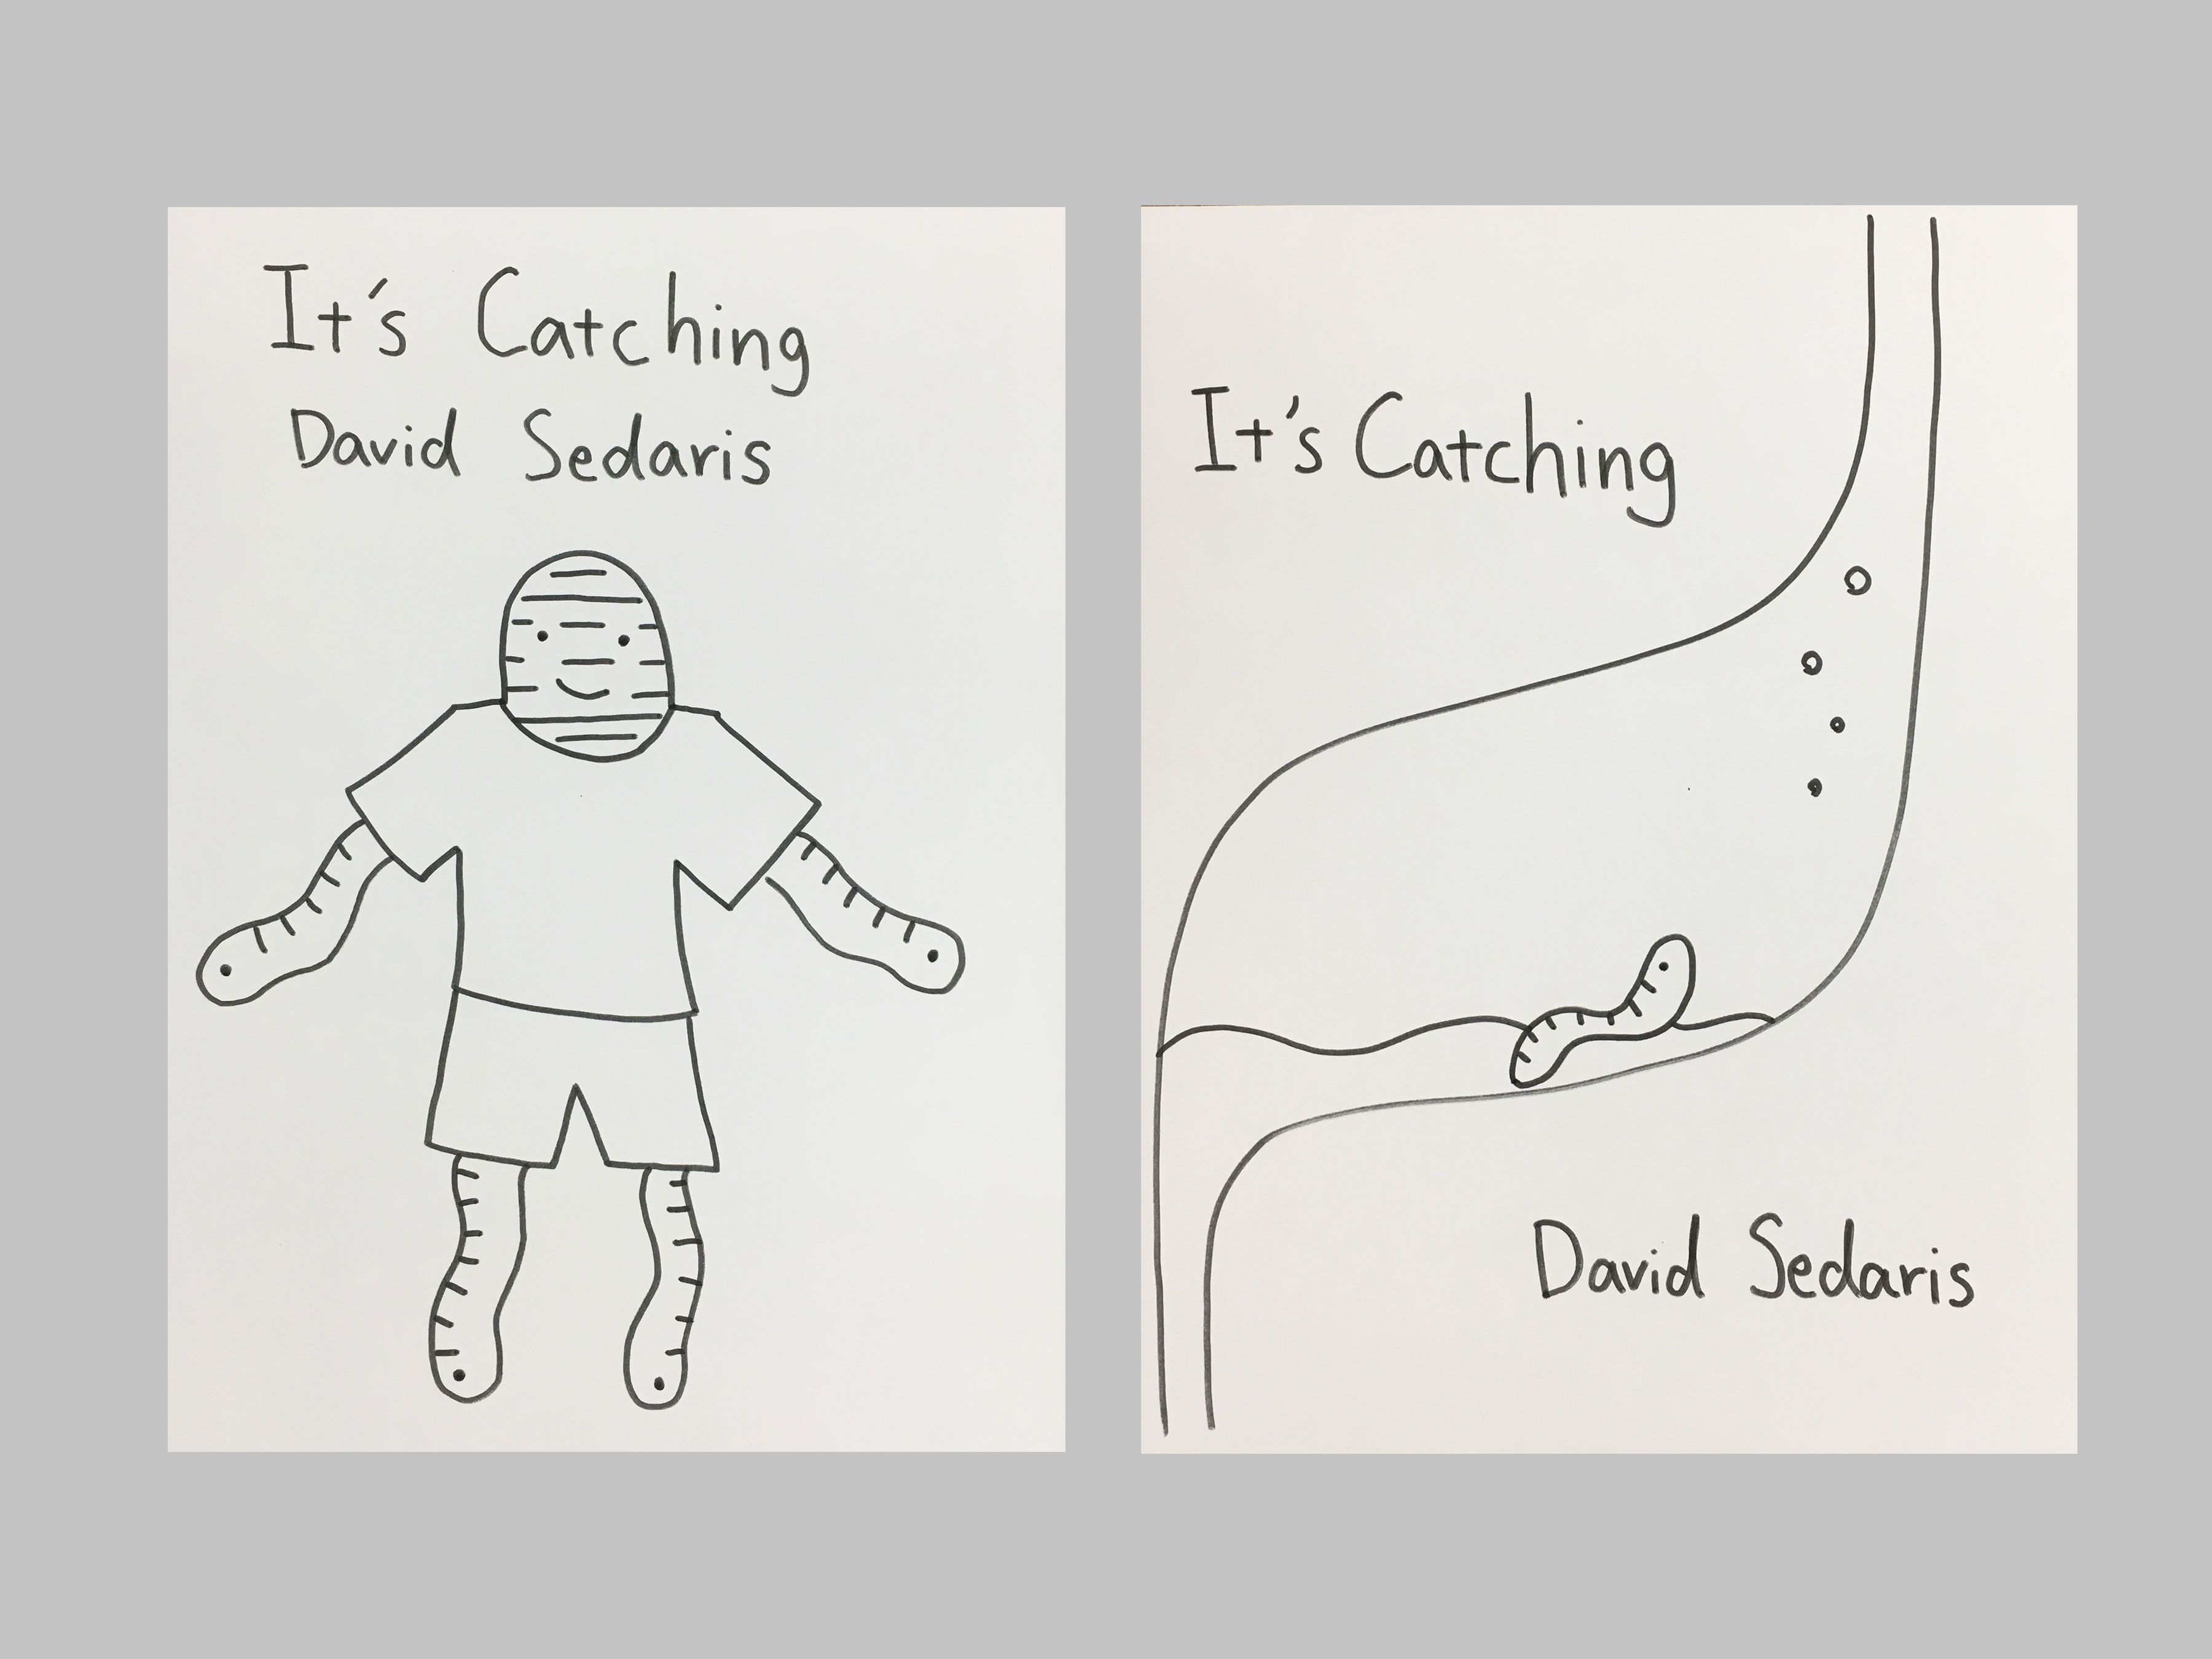 It's Catching
David Sedaris
It's Catching
David Sedaris